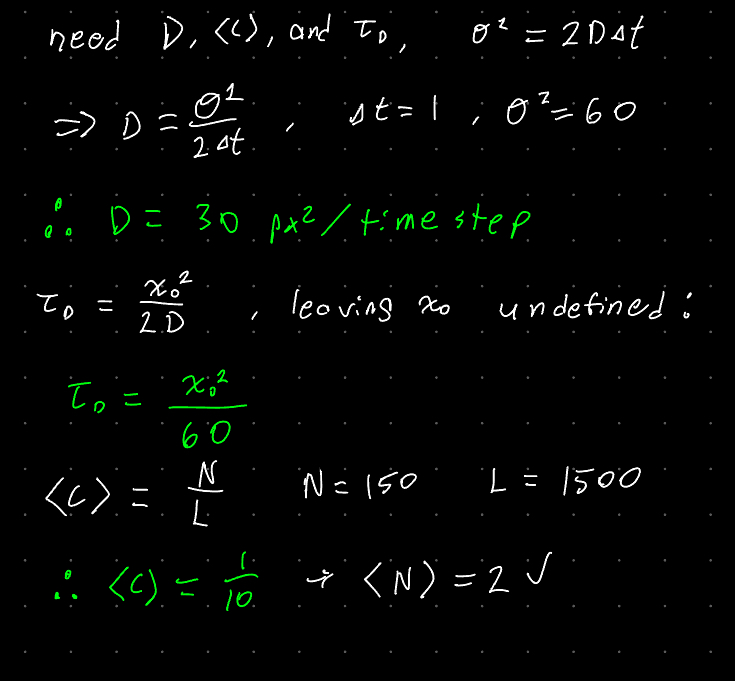 need D, ⟨C⟩, and τ_D, σ² = 2DΔt
⇒ D = σ²/2Δt , Δt = 1 , σ² = 60
∴ D = 30 px²/time step
τ_D = x₀²/2D , leaving x₀ undefined:
τ_D = x₀²/60
⟨C⟩ = N/L N = 150 L = 1500
∴ ⟨C⟩ = 1/10 → ⟨N⟩ = 2 ✓